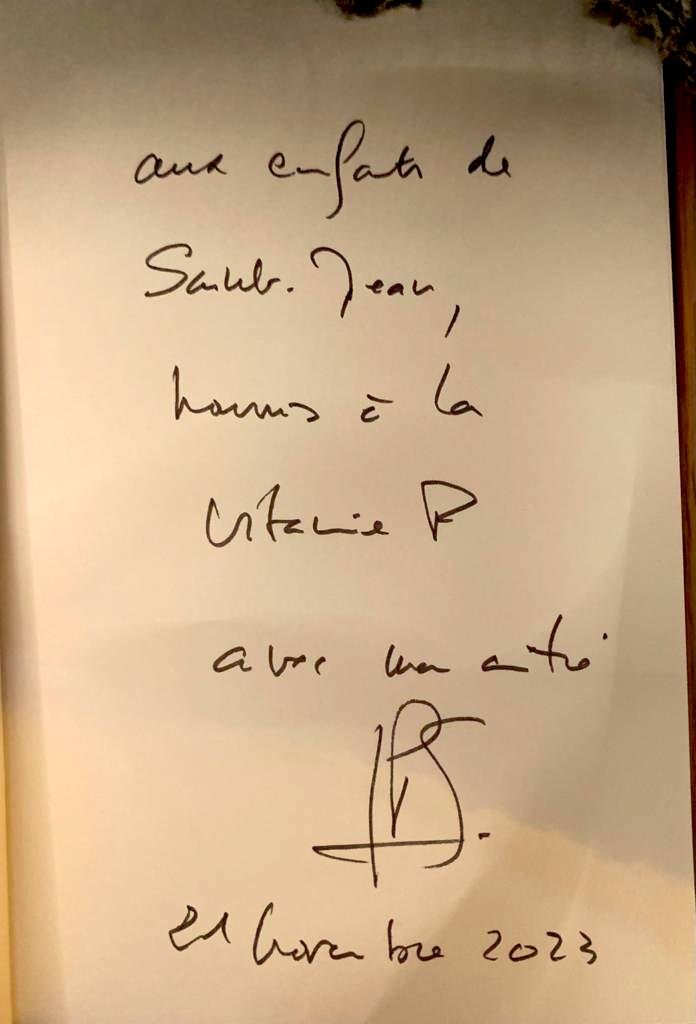 aux enfants de
Saint-Jean,
nourris à la
vitamine P
avec mon amitié
21 novembre 2023